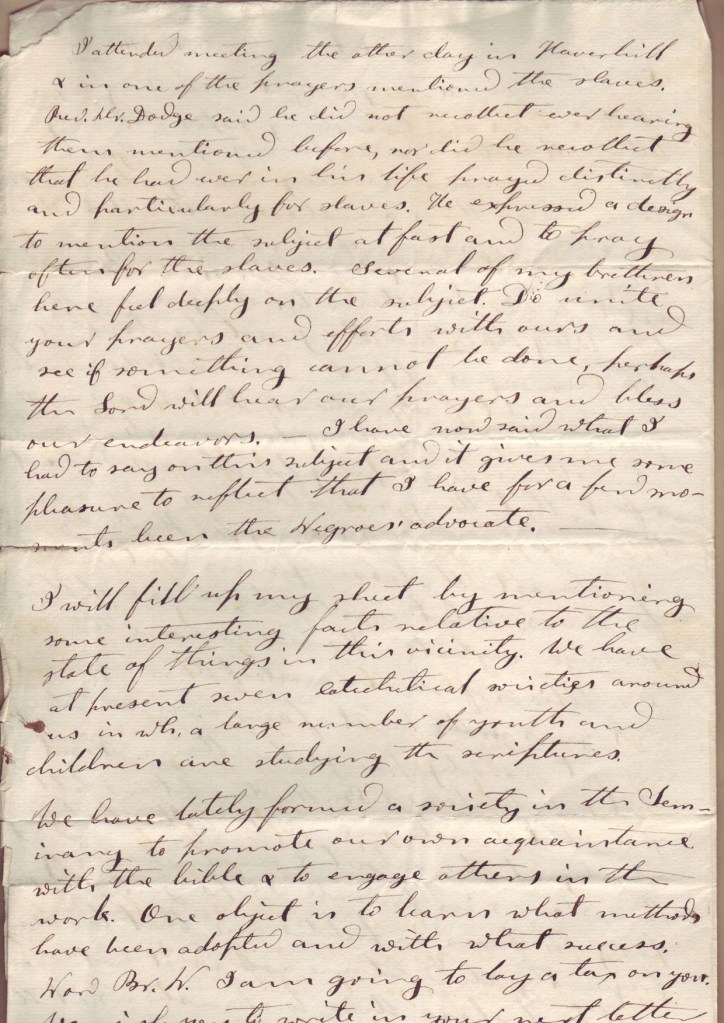 I attended meeting the other day in Haverhill
& in one of the prayers mentioned the slaves.
Rev. Mr. Dodge said he did not recollect ever hearing
them mentioned before, nor did he recollect
that he had ever in his life prayed distinctly
and particularly for slaves. He expressed a design
to mention the subject at fast and to pray
often for the slaves. Several of my brethren
here feel deeply on the subject. Do unite
your prayers and efforts with ours and
see if something cannot be done, perhaps
the Lord will hear our prayers and bless
our endeavors. — I have now said what I
had to say on this subject and it gives me some
pleasure to reflect that I have for a few mo-
ments been the Negroes' advocate. —
I will fill up my sheet by mentioning
some interesting facts relative to the
state of things in this vicinity. We have
at present seven catechetical societies around
us in wh. a large number of youth and
children are studying the scriptures.
We have lately formed a society in the Sem-
inary to promote our own acquaintance
with the bible & to engage others in the
work. One object is to learn what methods
have been adopted and with what success.
Now Br. W. I am going to lay a tax on you.
to write in your next letter